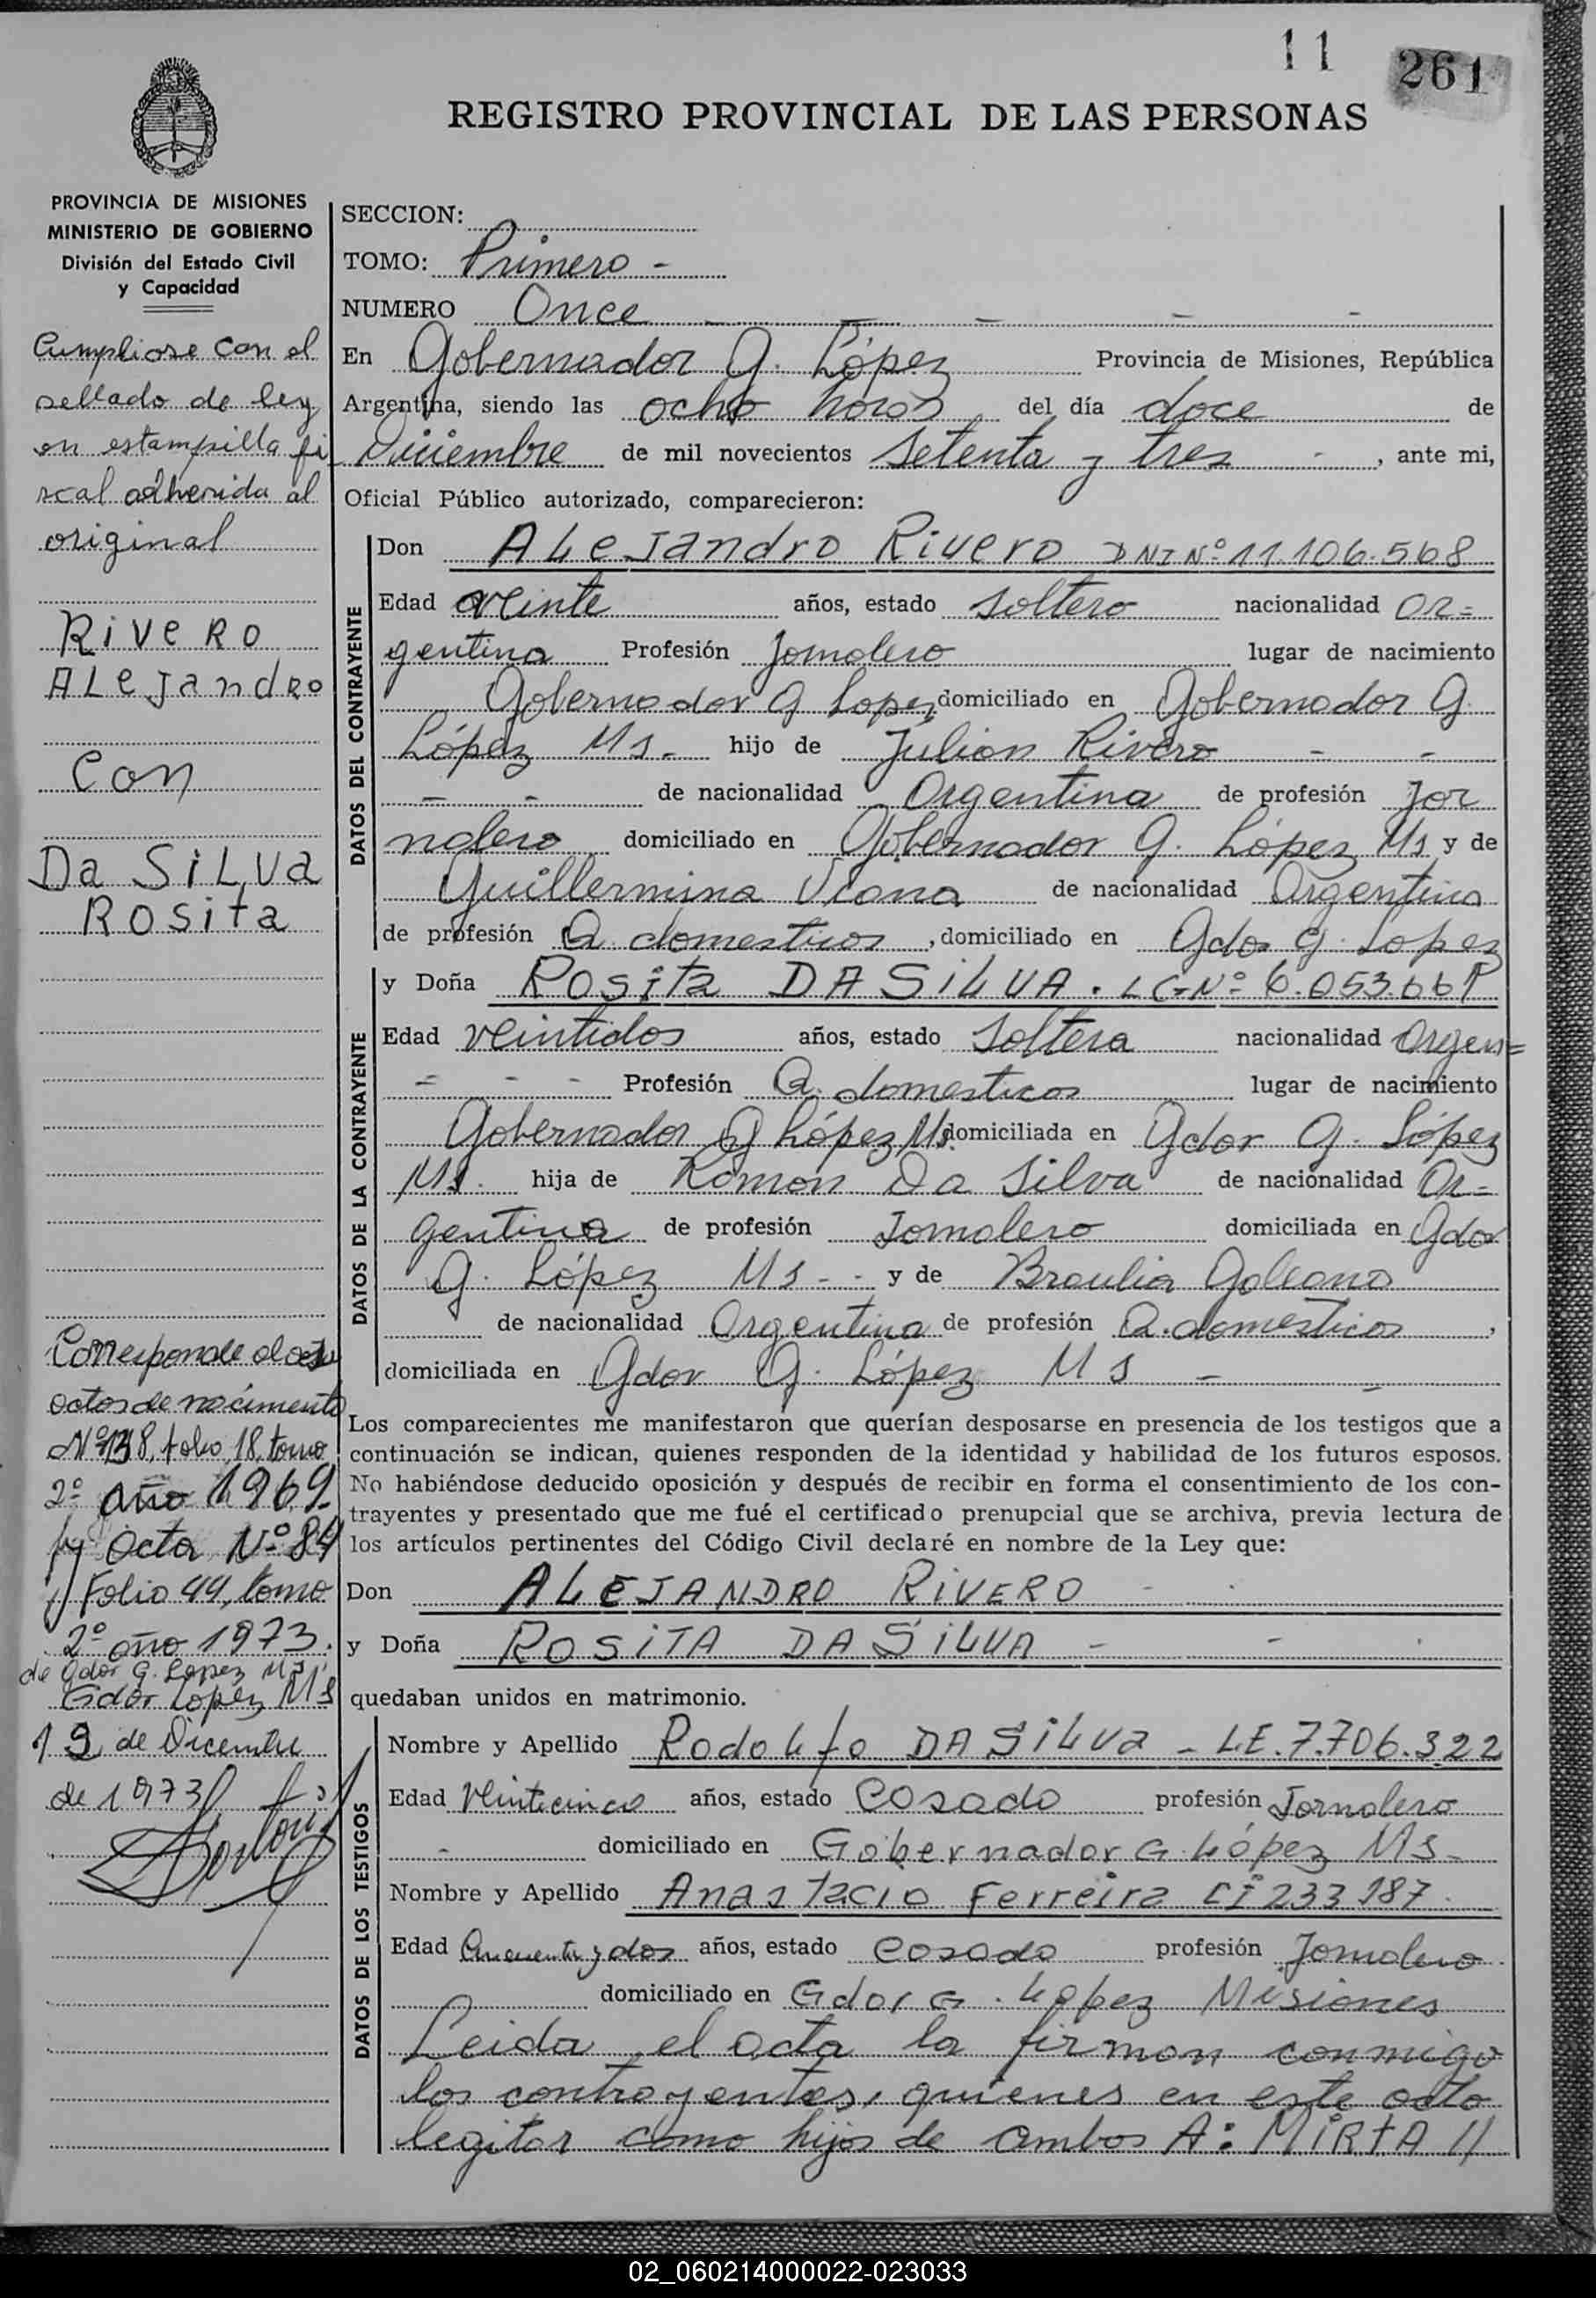 11 261
REGISTRO PROVINCIAL DE LAS PERSONAS
PROVINCIA DE MISIONES
MINISTERIO DE GOBIERNO
División del Estado Civil
y Capacidad
Cumpliose con el
sellado de ley
en estampilla fi
scal adherida al
original
RIVERO
ALEJANDRO
Con
Da SILVA
ROSITA
Corresponde
actas de nacimiento
Nº 138, folio 18, tomo
2º año 1969
y acta Nº 84
Folio 44, tomo
2º año 1973.
de Gdor G. Lopez Ms
Gdor Lopez Ms
12 de Dicembre
de 1973
SECCION:
TOMO: Primero -
NUMERO Once - - - - -
En Gobernador G. López Provincia de Misiones, República
Argentina, siendo las ocho horas, del día doce de
Diciembre de mil novecientos setenta y tres - , ante mi,
Oficial Público autorizado, comparecieron:
DATOS DEL CONTRAYENTE
Don ALeJandro Rivero DNI Nº 11.106.568
Edad veinte años, estado soltero nacionalidad ar=
gentina Profesión Jornalero lugar de nacimiento
Gobernador G Lopez domiciliado en Gobernador G.
López Ms. - hijo de Julian Rivero - -
- - de nacionalidad Argentina de profesión Jor
nalero domiciliado en Gobernador G. López Ms y de
Guillermina Viana de nacionalidad Argentina
de profesión Q. domesticos, domiciliado en Gdor G. Lopez
DATOS DE LA CONTRAYENTE
y Doña Rosita DA SILVA. LC Nº 6.053.661
Edad veintidos años, estado soltera nacionalidad Argen=
= - - Profesión Q. domesticos lugar de nacimiento
Gobernador G López Ms. domiciliada en Gdor G. López
Ms. hija de Ramon Da Silva de nacionalidad Ar=
gentina de profesión Jornalero domiciliada en Gdor
G. López Ms - - y de Braulia Galeano
de nacionalidad Argentina de profesión Q. domesticos,
domiciliada en Gdor G. López Ms - -
Los comparecientes me manifestaron que querían desposarse en presencia de los testigos que a
continuación se indican, quienes responden de la identidad y habilidad de los futuros esposos.
No habiéndose deducido oposición y después de recibir en forma el consentimiento de los con-
trayentes y presentado que me fué el certificado prenupcial que se archiva, previa lectura de
los artículos pertinentes del Código Civil declaré en nombre de la Ley que:
Don ALEJANDRO RIVERO -
y Doña ROSITA DA SILVA - -
quedaban unidos en matrimonio.
DATOS DE LOS TESTIGOS
Nombre y Apellido Rodolfo DA SILVA - LE. 7.706.322
Edad veinticinco años, estado Casado profesión Jornalero
- domiciliado en Gobernador G. López Ms -
Nombre y Apellido Anastacio Ferreira CI 233187.
Edad Cincuenta y dos años, estado Casado profesión Jornalero
domiciliado en Gdor G. López Misiones
Leida el acta la firman conmigo
los contrayentes, quienes en este acto
legitan como hijos de ambos A: MIRTA //
02_060214000022-023033